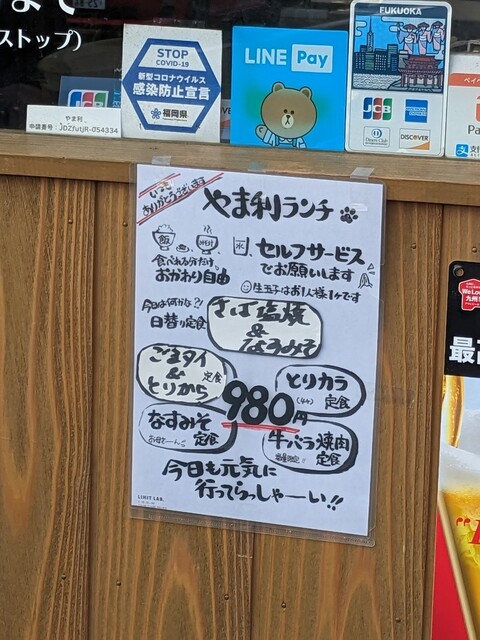 まで
ストップ)
STOP
COVID-19
新型コロナウイルス
感染防止宣言
福岡県
LINE Pay
FUKUOKA
JCB
AMERICAN EXPRESS
Diners Club
DISCOVER
JCB
やま利
申請番号:JDZfutjR-054334
いつも
ありがとうございます
やま利ランチ
飯
水
セルフサービス
でお願いします
食べれる分だけ
おかわり自由
生玉子はお1人様1ケです
今日は何かな?!
日替り定食
さば塩焼
&
なすみそ
ごまタイ
&
とりから
定食
とりカラ
(4ケ)
定食
980円
なすみそ
定食
牛バラ焼肉
定食
今日も元気に
行ってらっしゃーい!!
LIMIT LAB.
We Love
九州
最高